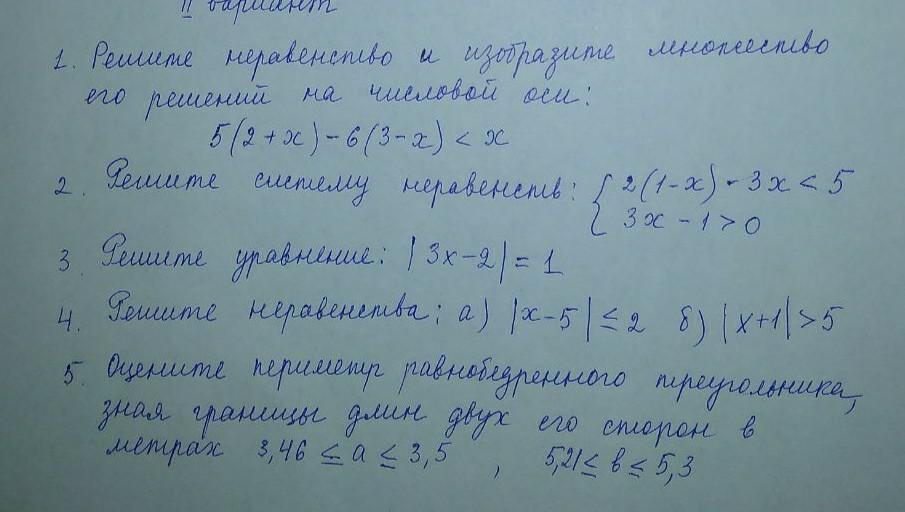 II вариант
1. Решите неравенство и изобразите множество
его решений на числовой оси:
5(2+x)-6(3-x)<x
2. Решите систему неравенств: { 2(1-x)-3x<5
3x-1>0
3. Решите уравнение: |3x-2|=1
4. Решите неравенства: а) |x-5|≤2 б) |x+1|>5
5. Оцените периметр равнобедренного треугольника,
зная границы длин двух его сторон в
метрах 3,46≤a≤3,5, 5,21≤b≤5,3